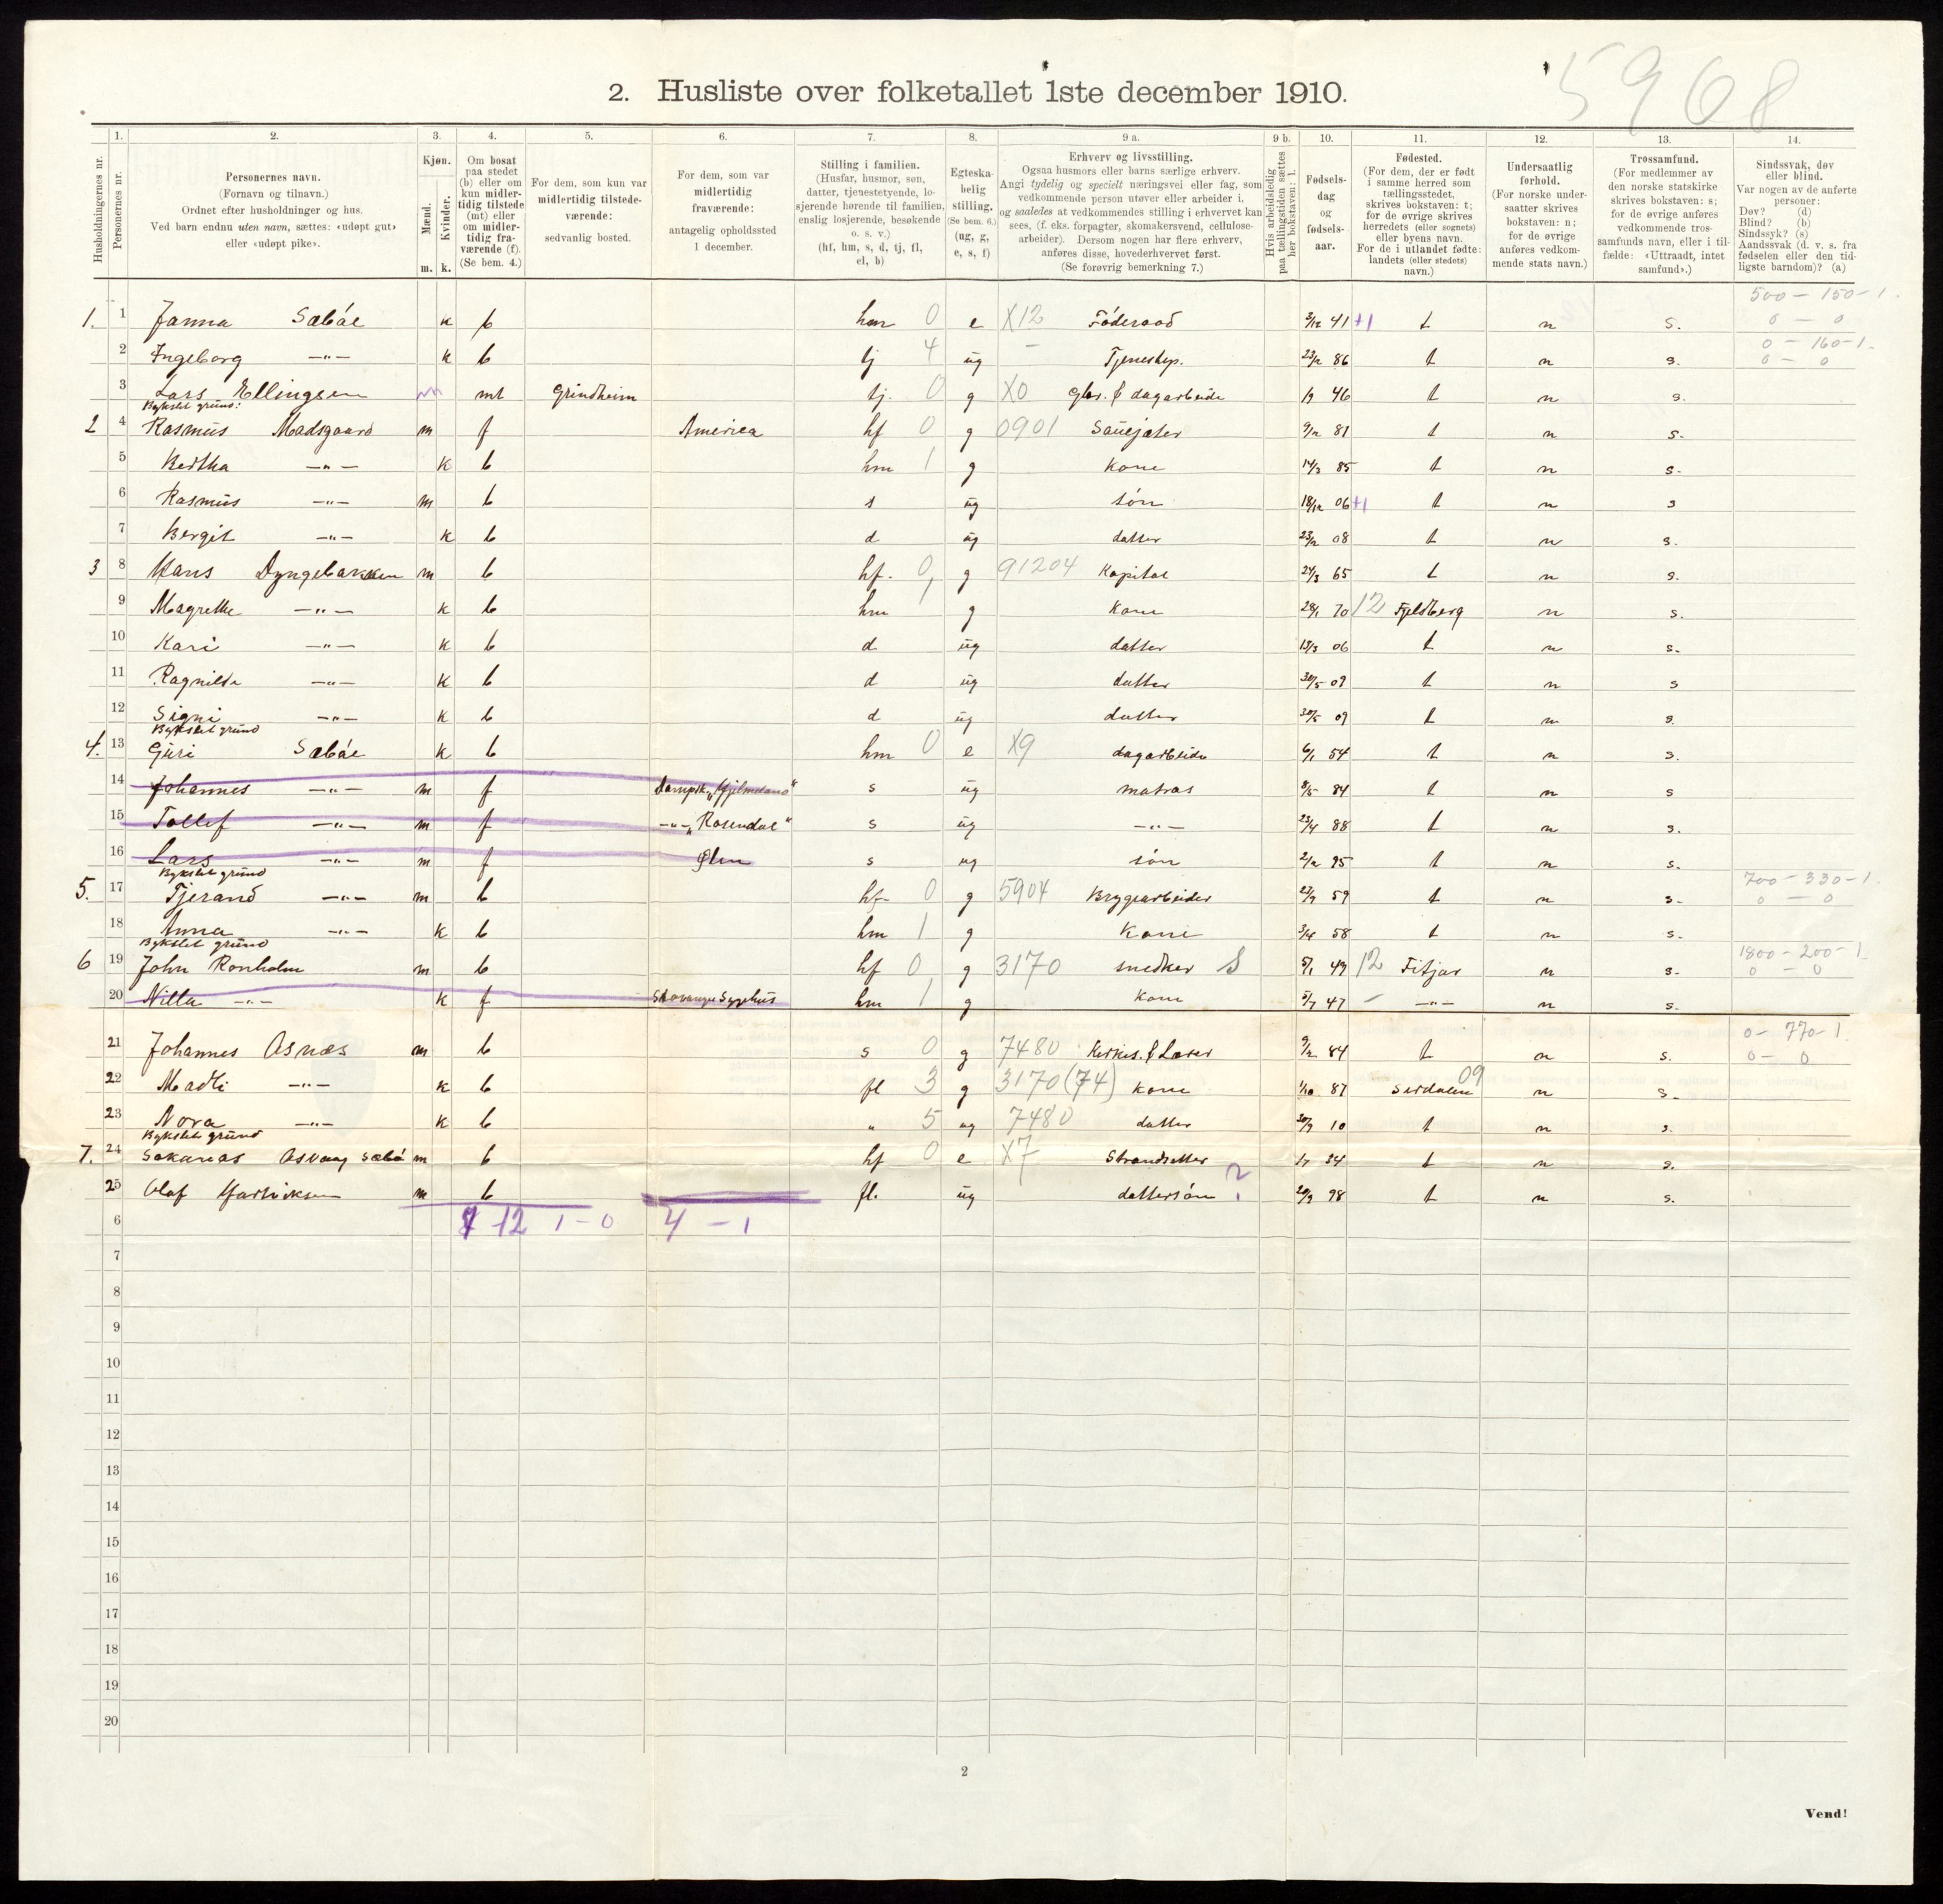 5968
2. Husliste over folketallet 1ste december 1910.
Husholdningernes nr.
1. Personernes nr.
2. Personernes navn. (Fornavn og tilnavn.) Ordnet efter husholdninger og hus. Ved barn endnu uten navn, sættes: «udøpt gut» eller «udøpt pike».
3. Kjøn. Mænd. m. Kvinder. k.
4. Om bosat paa stedet (b) eller om kun midlertidig tilstede (mt) eller om midlertidig fraværende (f). (Se bem. 4.)
5. For dem, som kun var midlertidig tilstedeværende: sedvanlig bosted.
6. For dem, som var midlertidig fraværende: antagelig opholdssted 1 december.
7. Stilling i familien. (Husfar, husmor, søn, datter, tjenestetyende, losjerende hørende til familien, enslig losjerende, besøkende o. s. v.) (hf, hm, s, d, tj, fl, el, b)
8. Egteskabelig stilling. (Se bem. 6.) (ug, g, e, s, f)
9 a. Erhverv og livsstilling. Ogsaa husmors eller barns særlige erhverv. Angi tydelig og specielt næringsvei eller fag, som vedkommende person utøver eller arbeider i, og saaledes at vedkommendes stilling i erhvervet kan sees, (f. eks. forpagter, skomakersvend, cellulosearbeider). Dersom nogen har flere erhverv, anføres disse, hovederhvervet først. (Se forøvrig bemerkning 7.)
9 b. Hvis arbeidsledig paa tællingstiden sættes her bokstaven: l.
10. Fødselsdag og fødselsaar.
11. Fødested. (For dem, der er født i samme herred som tællingsstedet, skrives bokstaven: t; for de øvrige skrives herredets (eller sognets) eller byens navn. For de i utlandet fødte: landets (eller stedets) navn.)
12. Undersaatlig forhold. (For norske undersaatter skrives bokstaven: n; for de øvrige anføres vedkommende stats navn.)
13. Trossamfund. (For medlemmer av den norske statskirke skrives bokstaven: s; for de øvrige anføres vedkommende trossamfunds navn, eller i tilfælde: «Uttraadt, intet samfund».)
14. Sindssvak, døv eller blind. Var nogen av de anførte personer: Døv? (d) Blind? (b) Sindssyk? (s) Aandssvak (d. v. s. fra fødselen eller den tidligste barndom)? (a)
500 - 150-1.
1. 1 Janna Sæbøe k b hm 0 e X12 Føderaad 3/12 41 +1 t n s. 0 - 0
0 - 160-1.
2 Ingeborg -"- k b tj 4 ug - Tjenestep. 23/2 86 t n s. 0 - 0
3 Lars Ellingsen m mt Grindheim tj. 0 g X0 dagarbeide 46 t n s.
Bykslet grund:
2 4 Rasmus Madsgaard m f America hf 0 g 0901 Sauejæter 9/12 81 t n s.
5 Bertha -"- k b hm 1 g kone 14/3 85 t n s.
6 Rasmus -"- m b s ug søn 18/12 06 +1 t n s
7 Bergit -"- k b d ug datter 23/2 08 t n s.
3 8 Hans Dyngebakken m b hf. 0 g 91204 Kapital 24/3 65 t n s.
9 Magrethe -"- k b hm 1 g kone 28/1 70 12 Fjeldberg n s.
10 Kari -"- k b d ug datter 13/3 06 t n s.
11 Ragnilda -"- k b d ug datter 30/5 09 t n s
12 Signi -"- k b d ug datter 30/5 09 t n s.
Bykslet grund
4. 13 Guri Sæbøe k b hm 0 e X9 dagarbeide 6/1 54 t n s.
14 Johannes -"- m f Dampsk. „Hjelmeland" s ug matros 8/5 84 t n s
15 Tollef -"- m f -"- „Rosendal" s ug -"- 23/4 88 t n s.
16 Lars -"- m f Ølen s ug søn 2/12 95 t n s.
Bykslet grund
700 - 330-1.
5. 17 Tjerand -"- m b hf- 0 g 5904 Bryggearbeider 23/9 59 t n s. 0 - 0
18 Anna -"- k b hm 1 g Kone 3/4 58 t n s.
Bykslet grund
1800 - 200-1
6 19 John Ronholm m b hf 0 g 3170 snedker S 5/1 49 12 Fitjar n s. 0 - 0
20 Nilla -"- k f Stavanger Sygehus hm 1 g kone 5/7 47 - -"- n s.
0 - 770-1
21 Johannes Asnæs m b s 0 g 7480 Kirkes. & Lærer 9/2 84 t n s. 0 - 0
22 Madli -"- k b fl 3 g 3170 (74) kone 1/10 87 Sirdalen 09 n s.
23 Nora -"- k b " 5 ug 7480 datter 20/9 10 t n s.
Bykslet grund
7. 24 Sakarias Asvaag Sæbø m b hf 0 e X7 Strandsitter 34 t n s.
25 Olaf m b fl. ug dattersøn ? 29/9 98 t n s.
12 1 - 0 4 - 1
6
7
8
9
10
11
12
13
14
15
16
17
18
19
20
2
Vend!